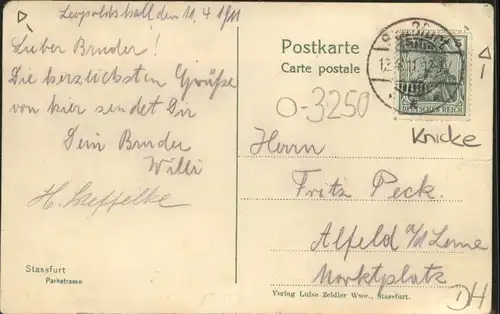 Leopoldshall den 11.4.1911
Lieber Bruder!
Die herzlichsten Grüße
von hier sendet Dir
Dein Bruder
Willi
Stassfurt
Parkstrasse
Postkarte
Carte postale
O-3250
DEUTSCHES REICH
Knicke
Herrn
Fritz Peck.
Alfeld a/d Leine
Marktplatz
Verlag Luise Zeidler Wwe., Stassfurt.
DH